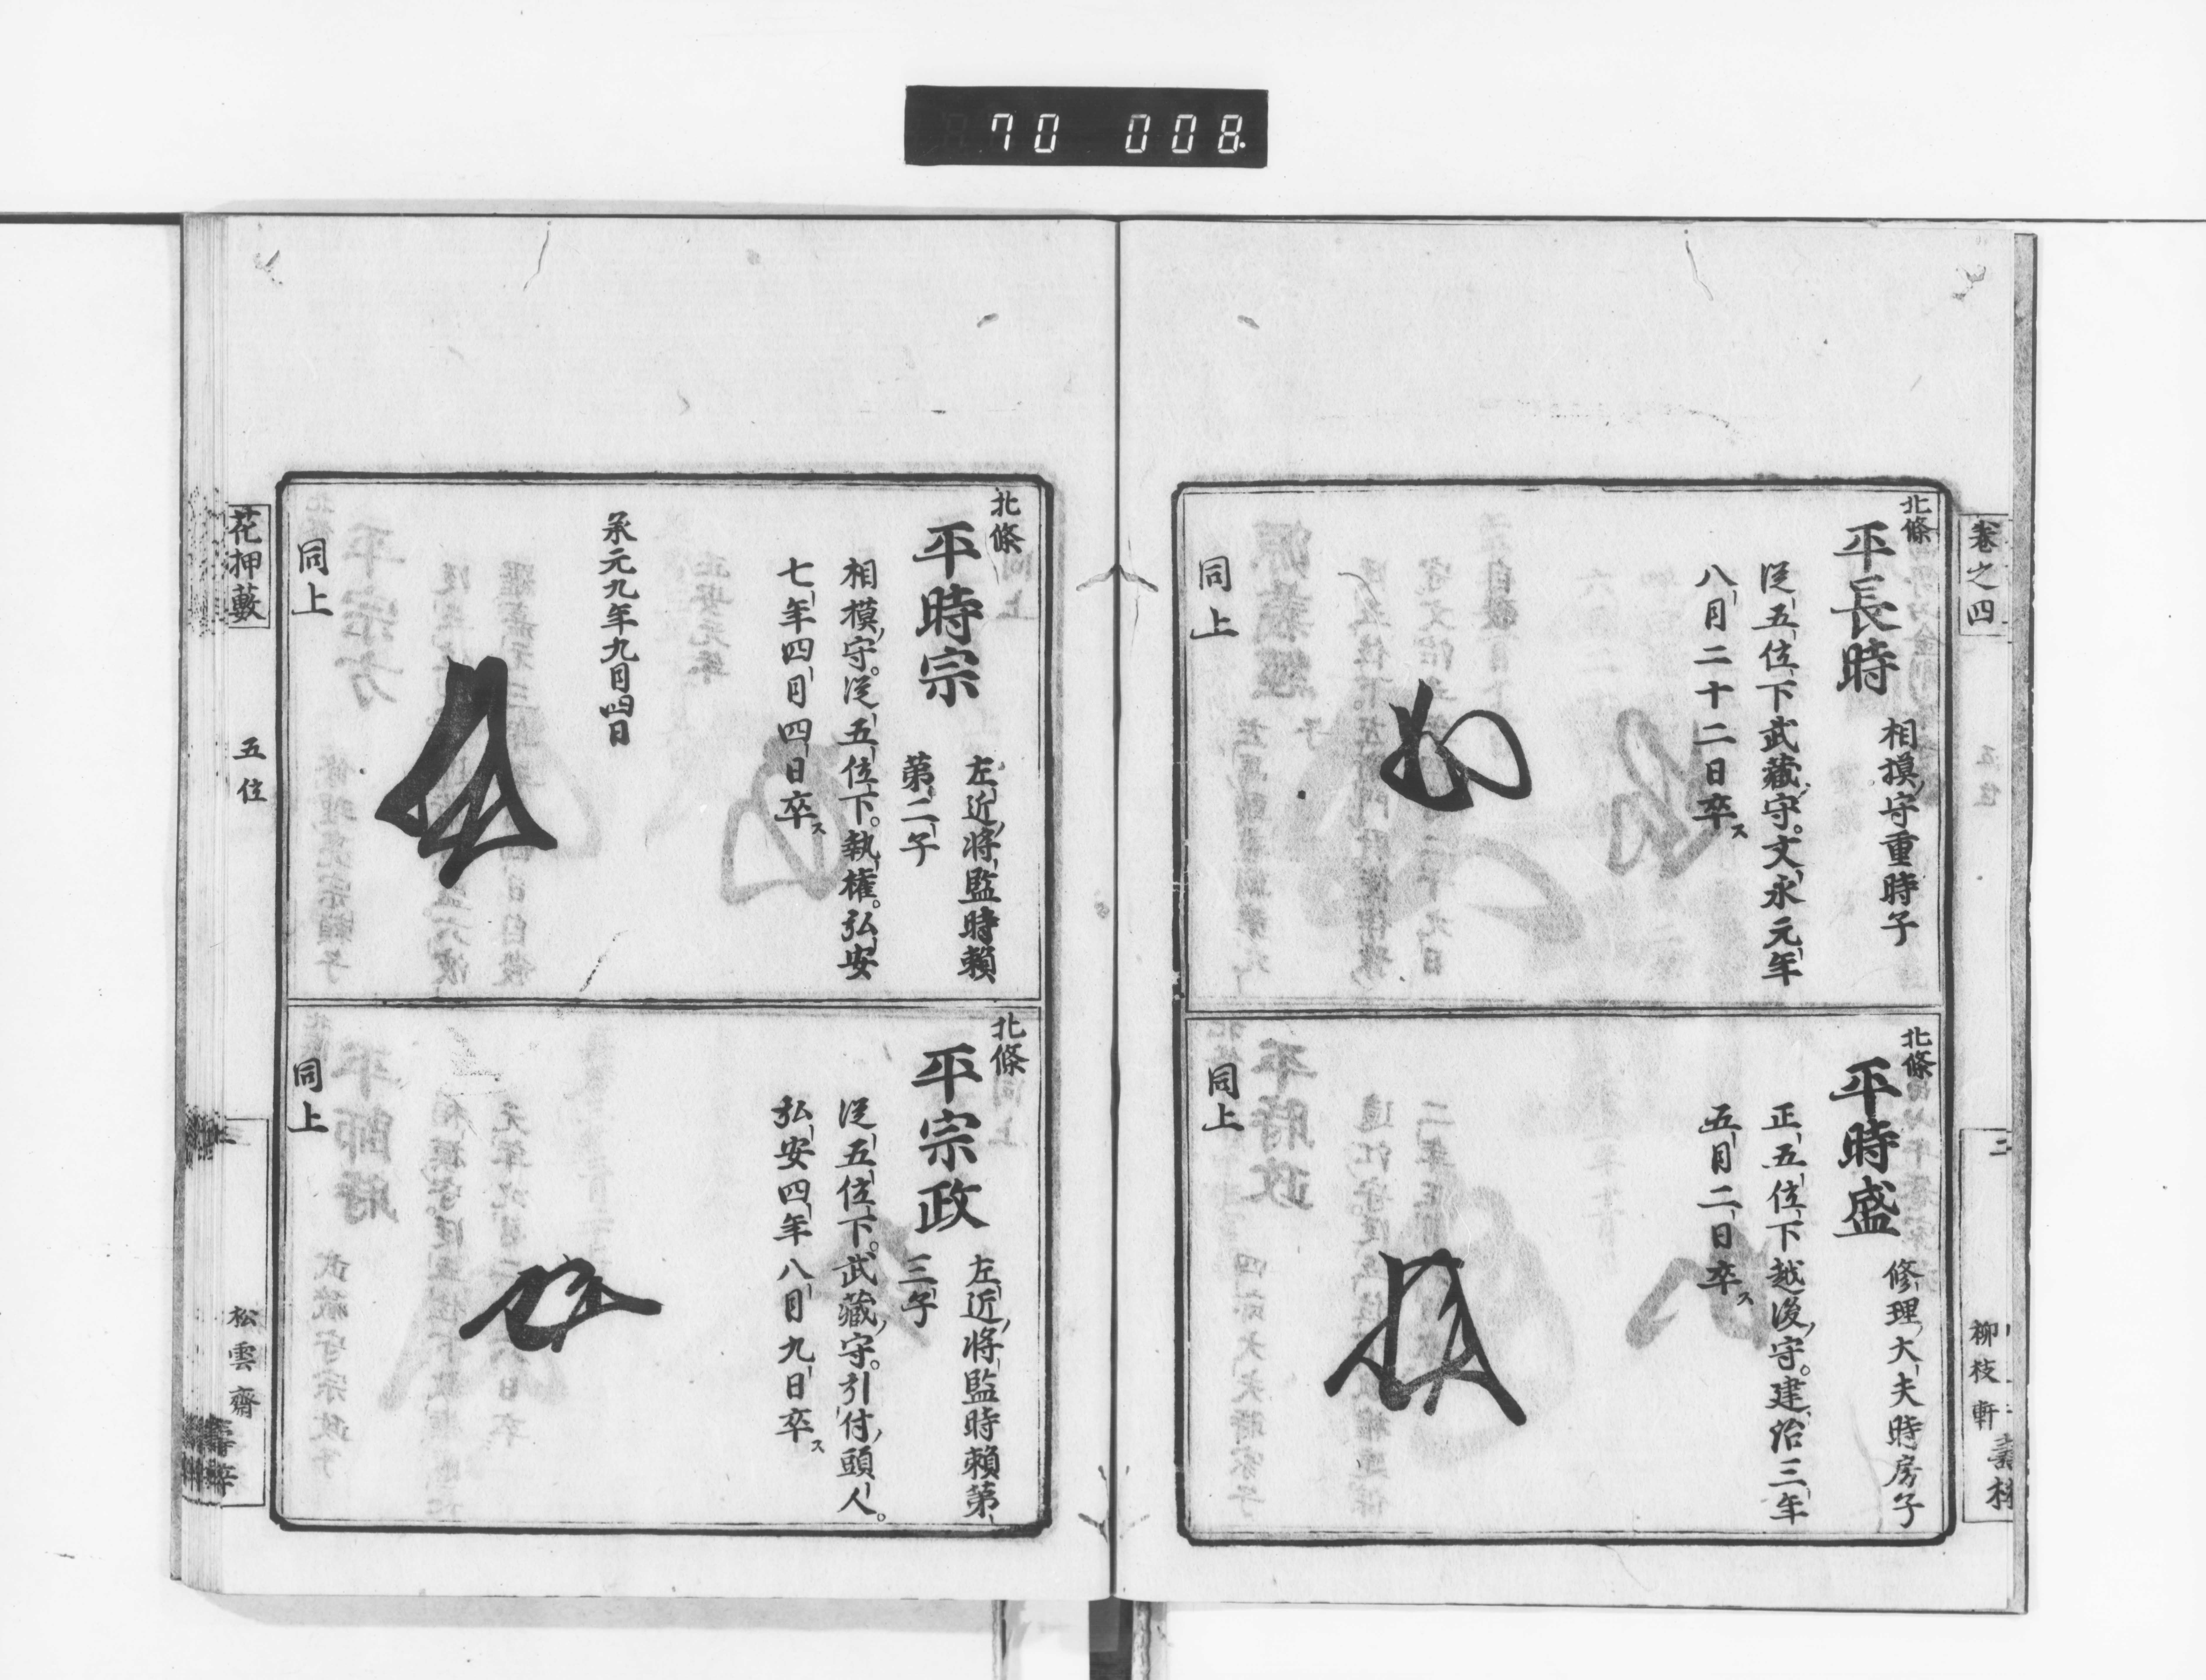 70 008
卷之四
二
柳枝軒
北條
平長時
相摸守重時子
從五位下武藏守。文永元年
八月二十二日卒ス
同上
北條
平時盛
修理大夫時房子
正五位下越後守。建治三年
五月二日卒ス
同上
北條
平時宗
左近將監時賴
第二子
相模守。從五位下。執權。弘安
七年四月四日卒ス
承元九年九月四日
同上
北條
平宗政
左近將監時賴第
三子
從五位下。武藏守。引付頭人。
弘安四年八月九日卒ス
同上
花押藪
五位
松雲齋